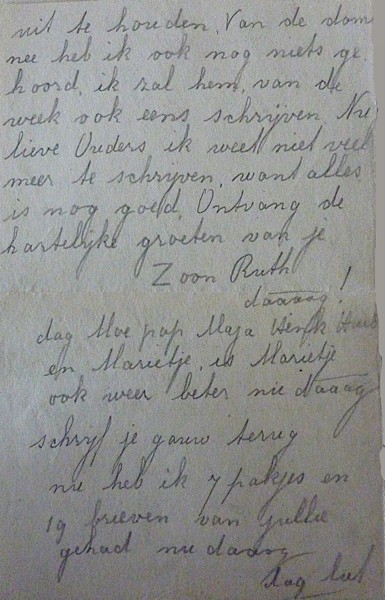 uit te houden. Van de dom
nee heb ik ook nog niets ge
hoord, ik zal hem, van de
week ook eens schrijven. Nu
lieve Ouders ik weet niet veel
meer te schrijven, want alles
is nog goed, Ontvang de
hartelijke groeten van je
Zoon Ruth
daaaag!
dag Moe pap Maja Henk
en Marietje, is Marietje
ook weer beter nu daaag
schrijf je gauw terug
nu heb ik 7 pakjes en
19 brieven van jullie
gehad nu daaag
dag